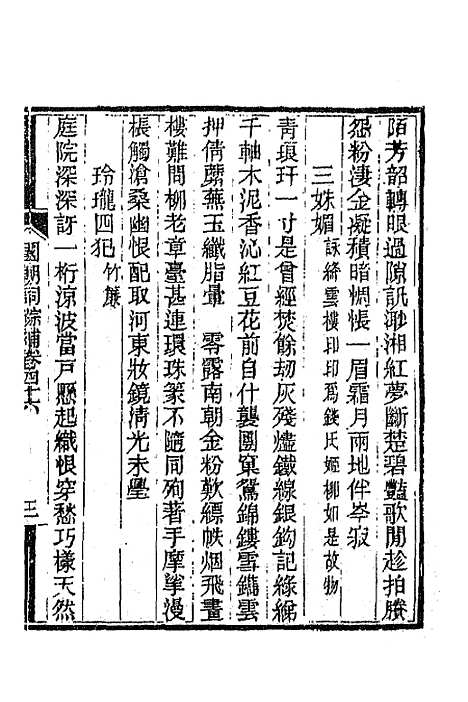 陌芳韶轉眼過隙訊渺湘紅夢斷楚碧豔歌閒趁拍賸
怨粉淒金凝積暗惆悵一眉霜月兩地伴岑寂
三姝媚 詠絳雲樓印印爲錢氏姬柳如是故物
靑琅玕一寸是曾經焚餘劫灰殘燼鐵線銀鉤記綠綈
千軸木泥香沁紅豆花前自什襲團窠鴛錦鏤雪鐫雲
押倩蘼蕪玉纖脂暈 零露南朝金粉歎縹帙烟飛畫
樓難問柳老章臺甚連環珠篆不隨同殉著手摩挲漫
棖觸滄桑幽恨配取河東妝鏡淸光未壘
玲瓏四犯 竹簾
庭院深深訝一桁涼波當戶懸起織恨穿愁巧樣天然
國朝詞綜補卷四十六
三